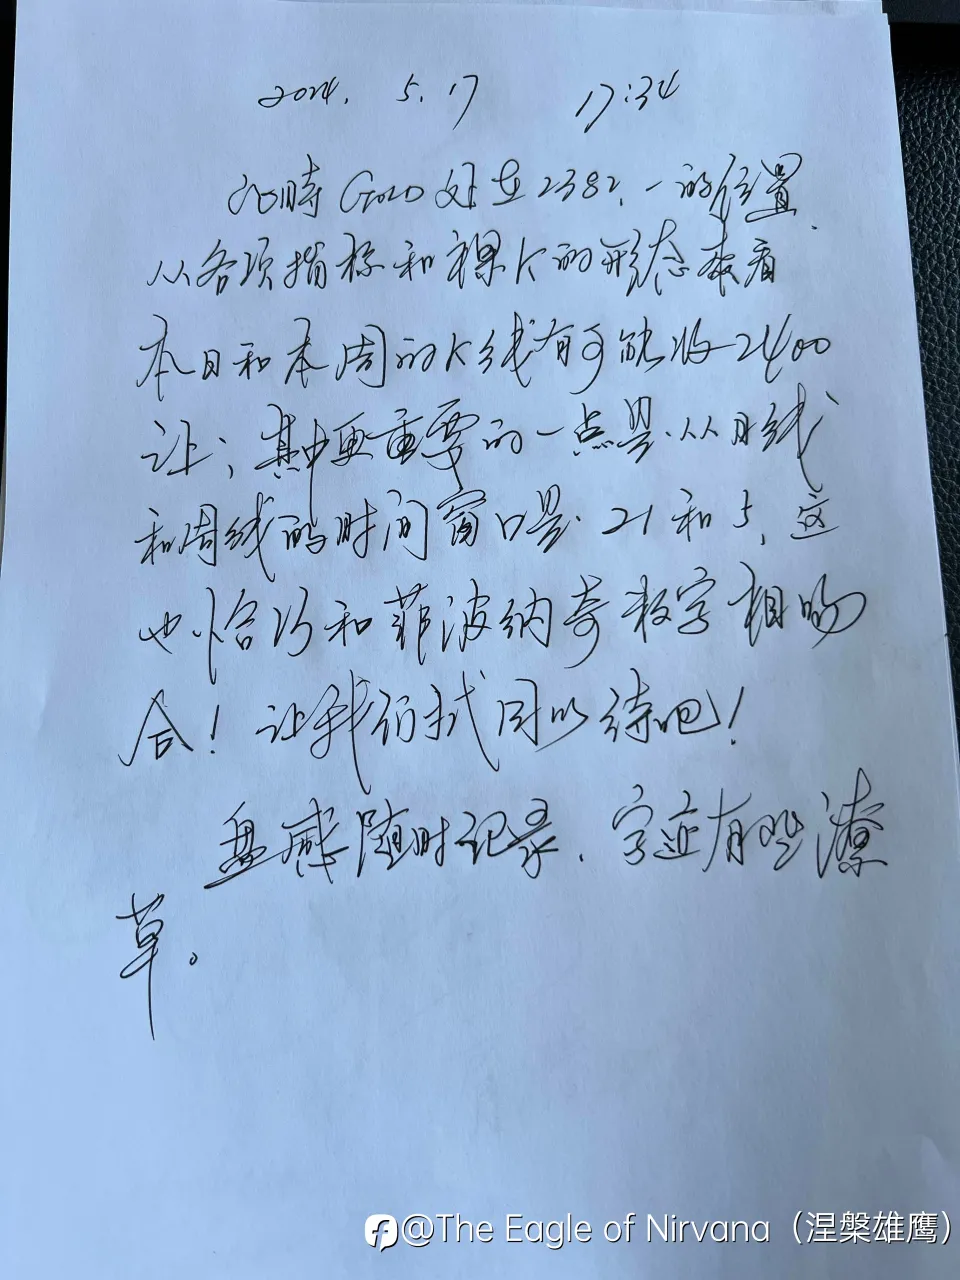 2024. 5. 17 17:34
此時 GOLD 处在2382.一的位置.
从各项指标和裸K的形态来看
本日和本周的K线有可能收2400
让；其中更重要的一点是.从日线
和周线的时间窗口是. 21 和 5, 这
也恰巧和菲波纳奇数字相吻
合！让我们拭目以待吧！
盘感随时记录. 字迹有些潦
草。
@The Eagle of Nirvana（涅槃雄鹰）